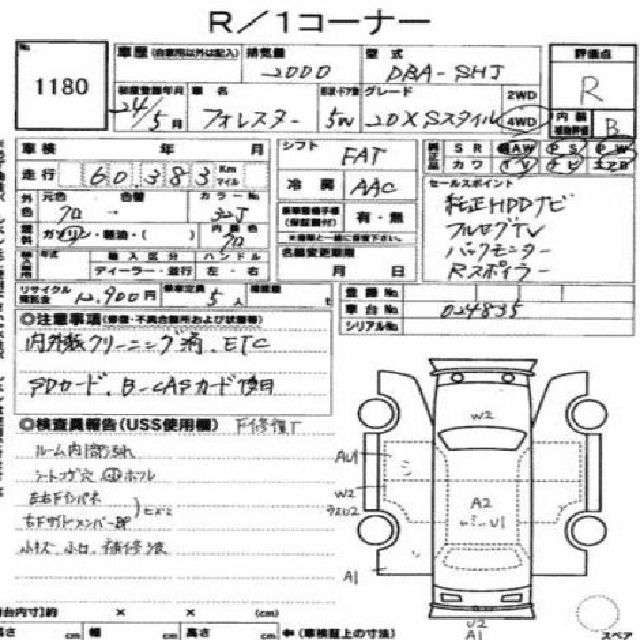 R／1コーナー
No. 車歴 (自家用以外は記入) 排気量 型式 評価点
1180 2000 DBA-SHJ R
初度登録年月 車名 形状・ドア数 グレード 2WD 内装
24/5月 フォレスター 5W 2.0XSスタイル 4WD 補助評価 B
車検 年 月 シフト FAT SR AW PS PW
走行 60,383 Km マイル 冷房 AAC カワ TV ナビ エアB
外色 元色 色替 カラーNo. セールスポイント
クロ 32J 有・無 純正HDDナビ
燃料 ガソリン・軽油・( ) 内装色 クロ フルセグTV
年式 輸入区分 ハンドル 名義変更期限 バックモニター
ディーラー・並行 左・右 月 日 Rスポイラー
リサイクル預託金 12,900円 乗車定員 5人 積載量 t
登録No.
車台No. 024835
シリアルNo.
◎注意事項(修復・不具合箇所および状態等)
内外装クリーニング済 ETC
SDカード、B-CASカード後日
◎検査員報告(USS使用欄)
ルーム内汚れ
シートコゲ穴
小キズ 小凹
W2
AU1
W2
A2
U1
A1
U2
A1
荷台内寸)約 × × (cm)
高さ cm 幅 cm 高さ cm ←(車検証上の寸法)
スペア